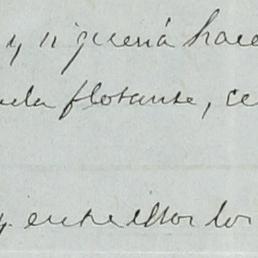 y si quería hace
uela flotante, ce
y entre ellos los